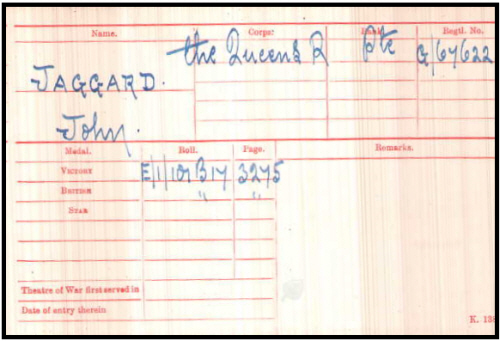 Name. Corps: Rank. Regtl. No.
JAGGARD. the Queens R Pte G/67622
John.
Medal. Roll. Page. Remarks.
VICTORY E/1/107 B17 3275
BRITISH " "
STAR
Theatre of War first served in
Date of entry therein